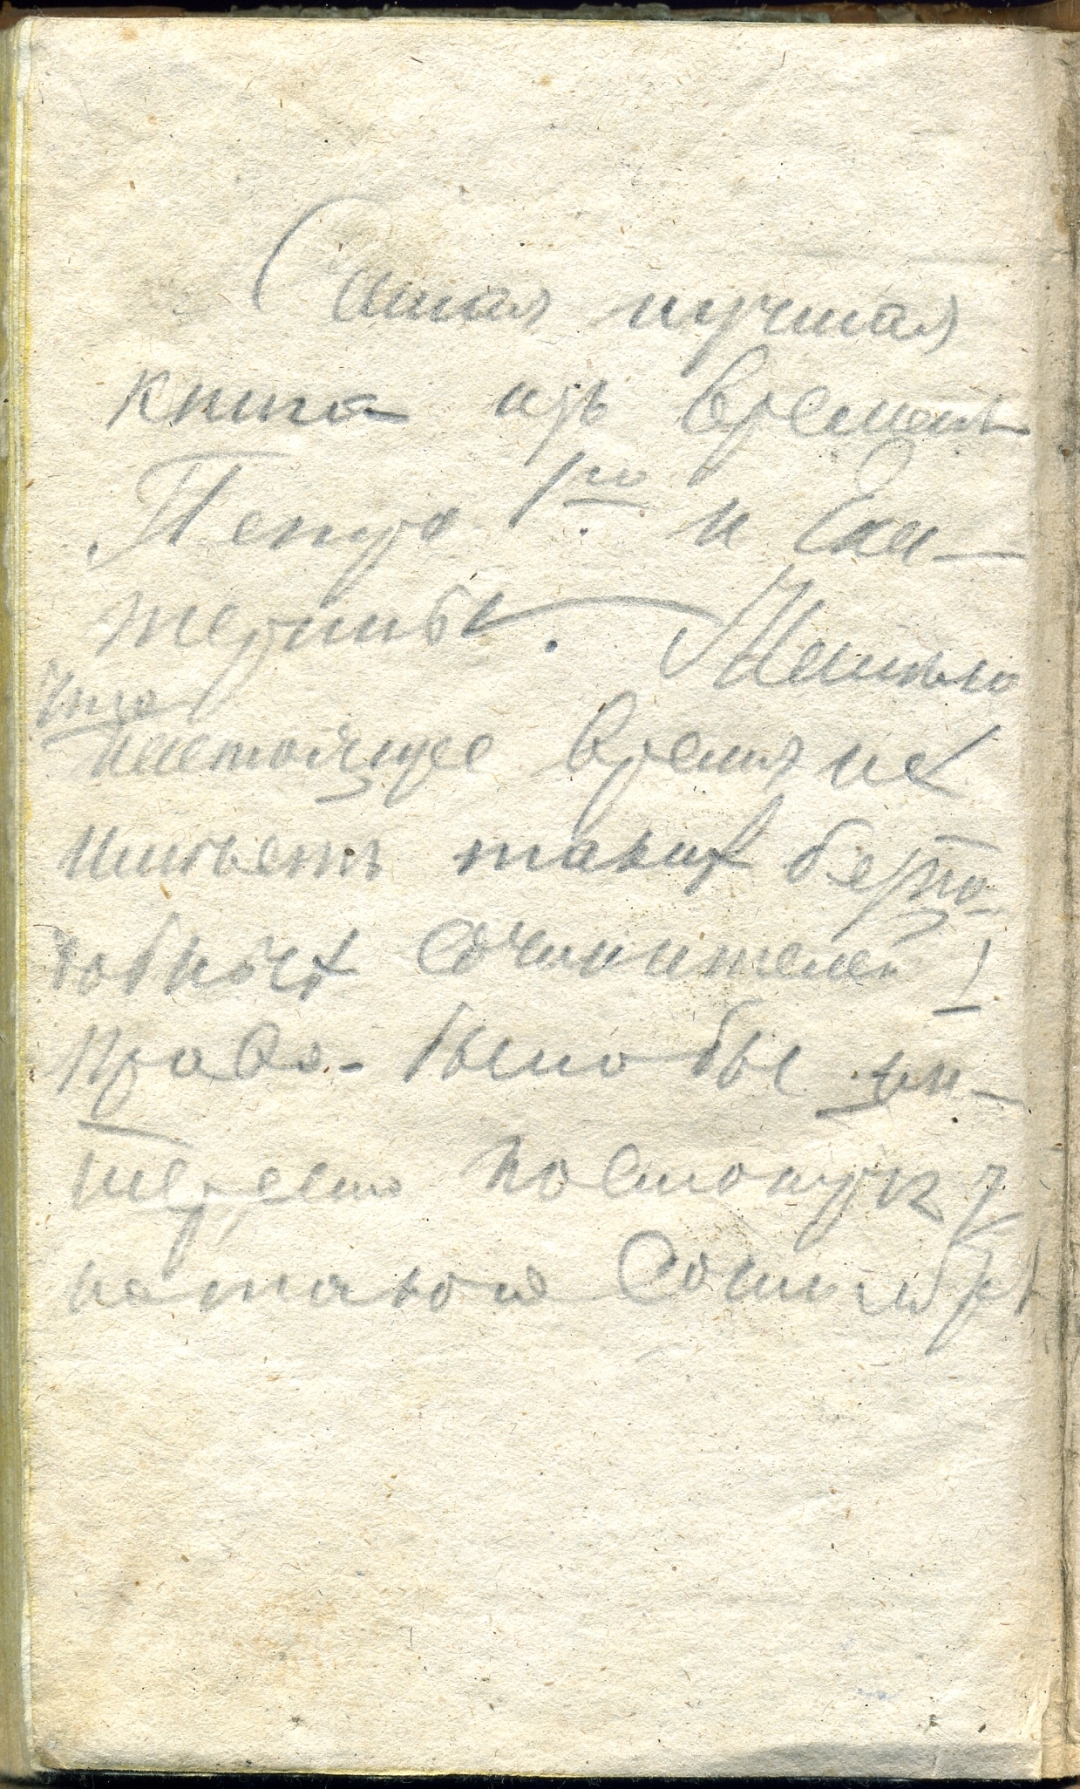 Самая лучшая
книга изъ времени
Петра 1го и Ека-
терины. Жалко
что
настоящее время не
имѣетъ такихъ безпо-
добныхъ сочинителей!
Право- было бы ин-
тересно
на такое